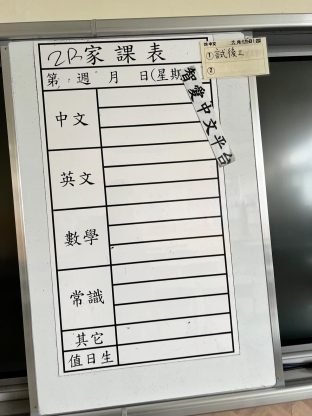 2B家課表
第 週 月 日(星期
智愛中文平台
①試後工
②
中文
英文
數學
常識
其它
值日生